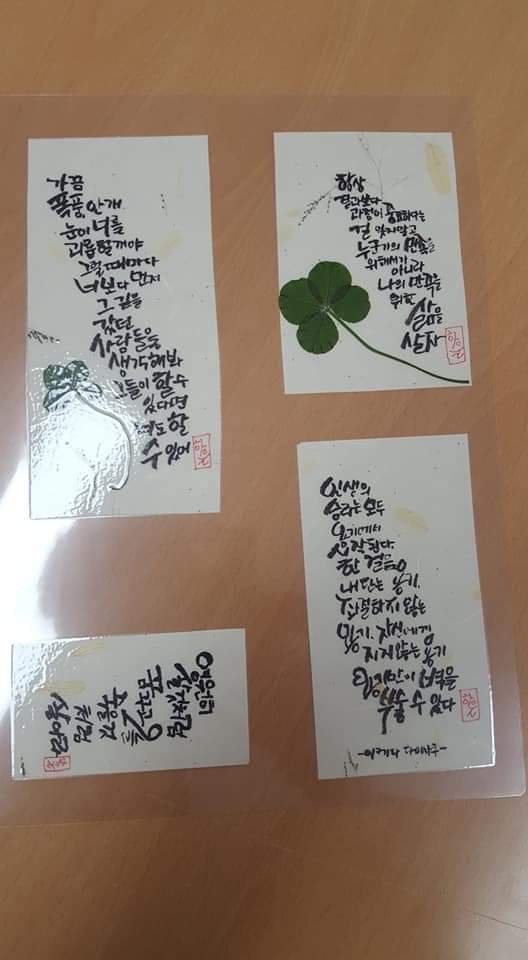 가끔
폭풍 안개
눈이 너를
괴롭힐거야
그럴때마다
너보다 먼저
그 길을
갔던
사람들을
생각해봐
그들이 할수
있다면
너도 할
수 있어
항상
결과보다
과정이 중요하다는
걸 잊지말고
누군가의 만족을
위해서가
아니라
나의 만족을
위한
삶을
살자
인생의
승리는 모두
용기에서
시작된다
한 걸음
내딛는 용기.
좌절하지 않는
용기. 자신에게
지지않는 용기
용기만이 벽을
부술 수 있다
-이케다 다이사쿠-
영원히
살것처럼
꿈꾸고
오늘
죽을것
처럼
살아라